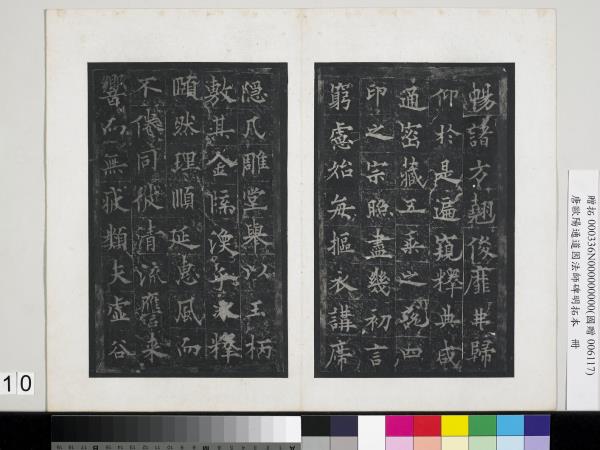 暢諸方翹俊靡弗歸
仰於是遍窺釋典咸
通密藏五乘之說四
印之宗照盡幾初言
窮慮始每摳衣講席
隱几雕堂舉以玉柄
敷其金牒渙乎冰釋
隤然理順延惠風而
不倦同彼清流應來
響而無疲類夫虛谷
贈拓 000336N000000000(國贈 006117)
唐歐陽通道因法師碑明拓本 冊
10